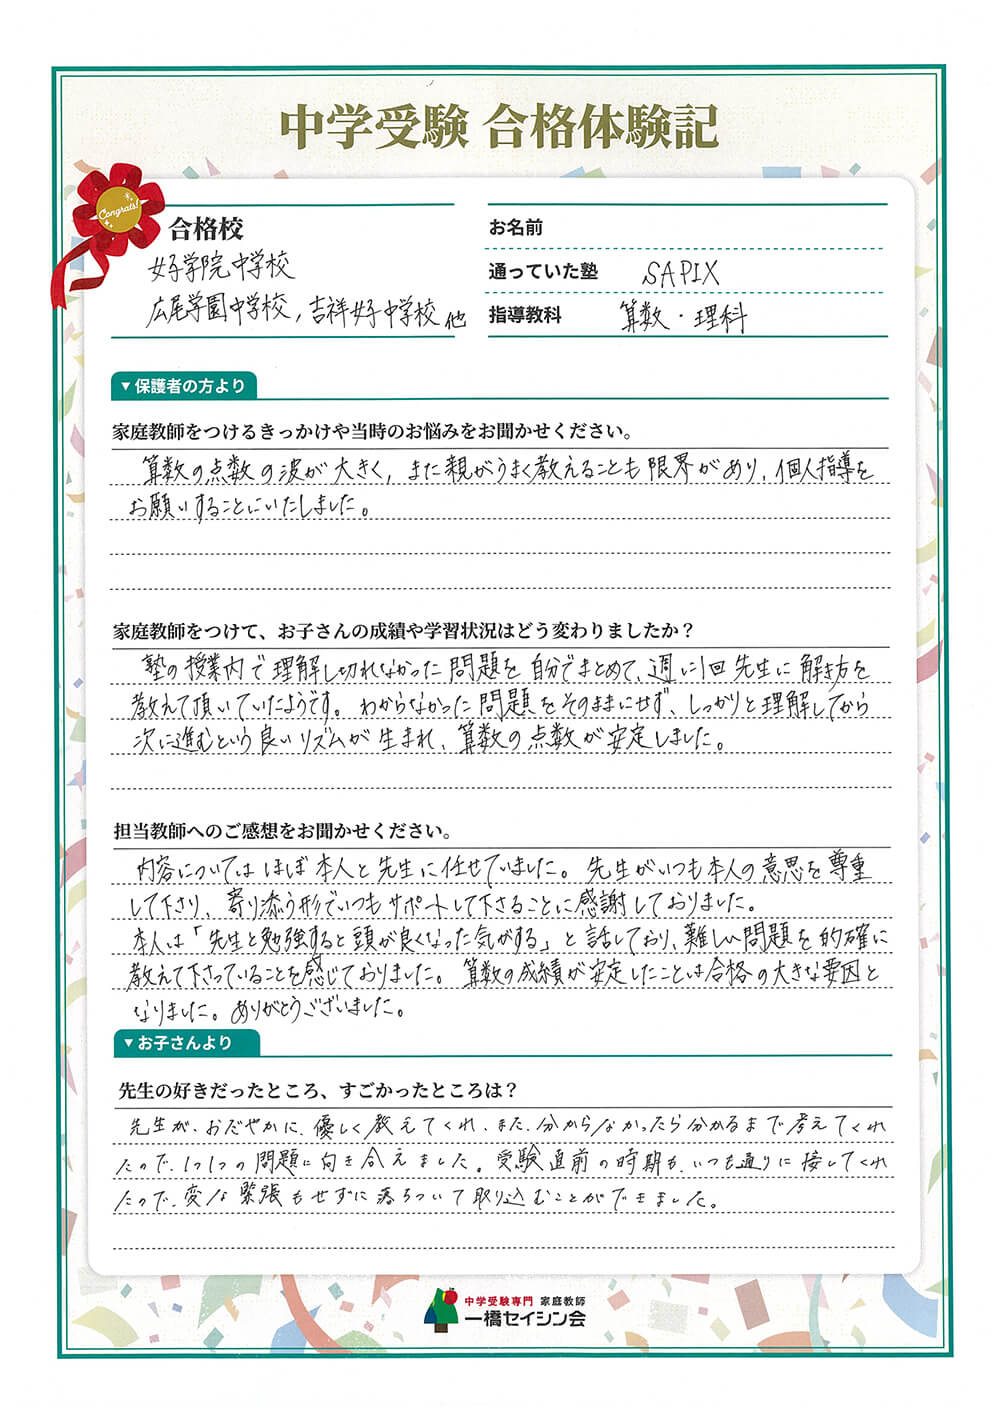 中学受験 合格体験記
Congrats!
合格校
女子学院中学校
広尾学園中学校，吉祥女子中学校 他
お名前
通っていた塾 SAPIX
指導教科 算数・理科
▼保護者の方より
家庭教師をつけるきっかけや当時のお悩みをお聞かせください。
算数の点数の波が大きく，また親がうまく教えることも限界があり，個人指導を
お願いすることにいたしました。
家庭教師をつけて、お子さんの成績や学習状況はどう変わりましたか？
塾の授業内で理解し切れなかった問題を自分でまとめて、週に1回先生に解き方を
教えて頂いていたようです。わからなかった問題をそのままにせず、しっかりと理解してから
次に進むという良いリズムが生まれ、算数の点数が安定しました。
担当教師へのご感想をお聞かせください。
内容についてはほぼ本人と先生に任せていました。先生がいつも本人の意思を尊重
して下さり、寄り添う形でいつもサポートして下さることに感謝しておりました。
本人は「先生と勉強すると頭が良くなった気がする」と話しており、難しい問題を的確に
教えて下さっていることを感じておりました。算数の成績が安定したことは合格の大きな要因と
なりました。ありがとうございました。
▼お子さんより
先生の好きだったところ、すごかったところは？
先生が、おだやかに、優しく教えてくれ、また、分からなかったら分かるまで考えてくれ
たので、1つ1つの問題に向き合えました。受験直前の時期も、いつも通りに接してくれ
たので、変な緊張もせずに落ちついて取り込むことができました。
中学受験専門 家庭教師
一橋セイシン会